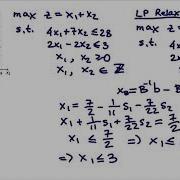 max z = x₁+x₂
s.t. 4x₁+7x₂ ≤ 28
2x₁ - 2x₂ ≤ 3
x₁, x₂ ≥ 0
x₁, x₂ ∈ ℤ
LP Relax
max
s.t. 4
x_B = B⁻¹b - B
x₁ = 7/2 - 1/11 s₁ - 7/22 s₂
x₁ + 1/11 s₁ + 7/22 s₂ = 7/2
x₁ ≤ 7/2 ⇒ x₁ ≤
⇒ x₁ ≤ 3